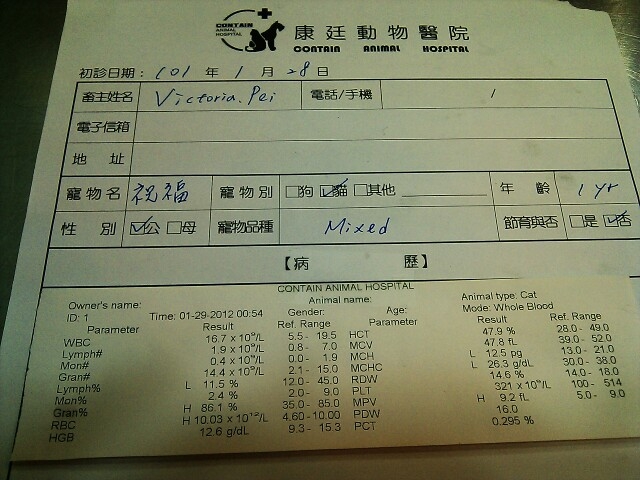 CONTAIN
ANIMAL
HOSPITAL
康廷動物醫院
CONTAIN ANIMAL HOSPITAL
初診日期： 101 年 1 月 28 日
畜主姓名 Victoria. Pei 電話/手機
電子信箱
地 址
寵物名 祝福 寵物別 □狗 ☑貓 □其他 年 齡 1 yr
性 別 ☑公 □母 寵物品種 Mixed 節育與否 □是 ☑否
【病 歷】
CONTAIN ANIMAL HOSPITAL
Owner's name: Animal name: Animal type: Cat
ID: 1 Time: 01-29-2012 00:54 Gender: Age: Mode: Whole Blood
Parameter Result Ref. Range Parameter Result Ref. Range
WBC 16.7 x 10^9/L 5.5 - 19.5 HCT 47.9 % 28.0 - 49.0
Lymph# 1.9 x 10^9/L 0.8 - 7.0 MCV 47.8 fL 39.0 - 52.0
Mon# 0.4 x 10^9/L 0.0 - 1.9 MCH L 12.5 pg 13.0 - 21.0
Gran# 14.4 x 10^9/L 2.1 - 15.0 MCHC L 26.3 g/dL 30.0 - 38.0
Lymph% L 11.5 % 12.0 - 45.0 RDW 14.6 % 14.0 - 18.0
Mon% 2.4 % 2.0 - 9.0 PLT 321 x 10^9/L 100 - 514
Gran% H 86.1 % 35.0 - 85.0 MPV H 9.2 fL 5.0 - 9.0
RBC H 10.03 x 10^12/L 4.60 - 10.00 PDW 16.0
HGB 12.6 g/dL 9.3 - 15.3 PCT 0.295 %